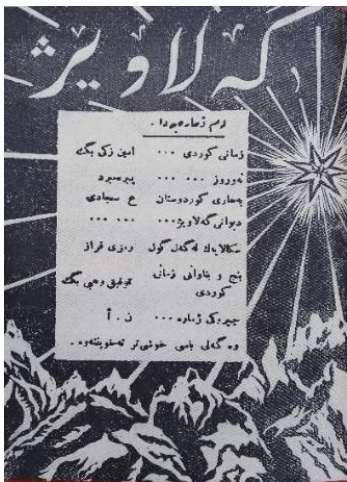 گەلاویژ
لەم ژمارەیەدا .
زمانی کوردی ... امین زکی بگ
نەوروز ... ... پیرەمیرد
بەهاری کوردوستان ع سجادی
دیوانی گەلاویژ... ... ...
سکالایەك لەگەل گول رمزی قزاز
پنج و بناوانی زمانی کوردی توفیق وهبی بگ
چیرۆکی ژمارە ... ن . أ
وە گەلی باسی خوشی تر ئەخوینتەوە .